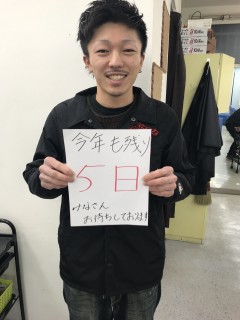 今年も残り
5日
みなさん
お待ちしております